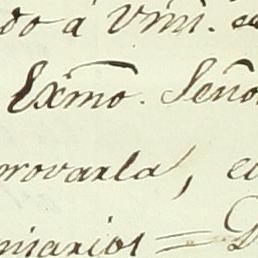 do á Vmi.
Exmo. Seño
rovarla, e
niarios = D